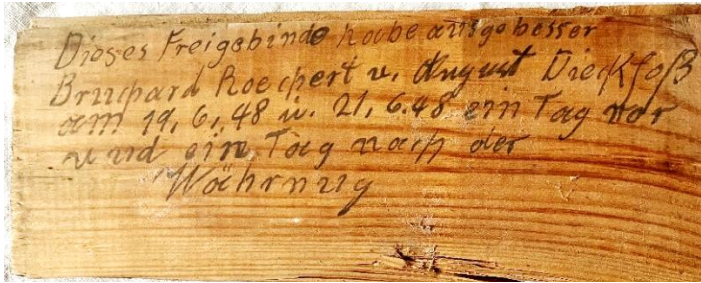 Dieses Freigebinde habe ausgebesser
Bruchard Roechert u. August Dieckfoß
am 19, 6, 48 u. 21, 6.48 ein Tag vor
und ein Tag nach der
Währnug